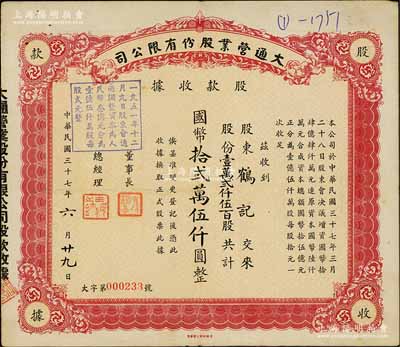 上海陽明拍賣
① -1757
大通營業股份有限公司
股款收據
股
款
收
據
本公司於中華民國三十七年三月
二十八日股東會決議增資國幣拾
肆億肆仟萬元連原資本國幣陸仟
萬元合成資本總額國幣拾伍億元
正分為壹億伍仟萬股每股拾元一
次收足
茲收到
股東 鶴記 交來
股份壹萬貳仟伍百股共計
國幣拾貳萬伍仟圓整
俟基准變更登記後憑此
收據換取正式股票此據
董事長
總經理
一九五一年十二
月九日股東會通
過調整資本為人
民幣
壹億伍仟萬股每
股
中華民國三十七年 六月 廿九日
大字第000233號
大通營業股份有限公司股款收據